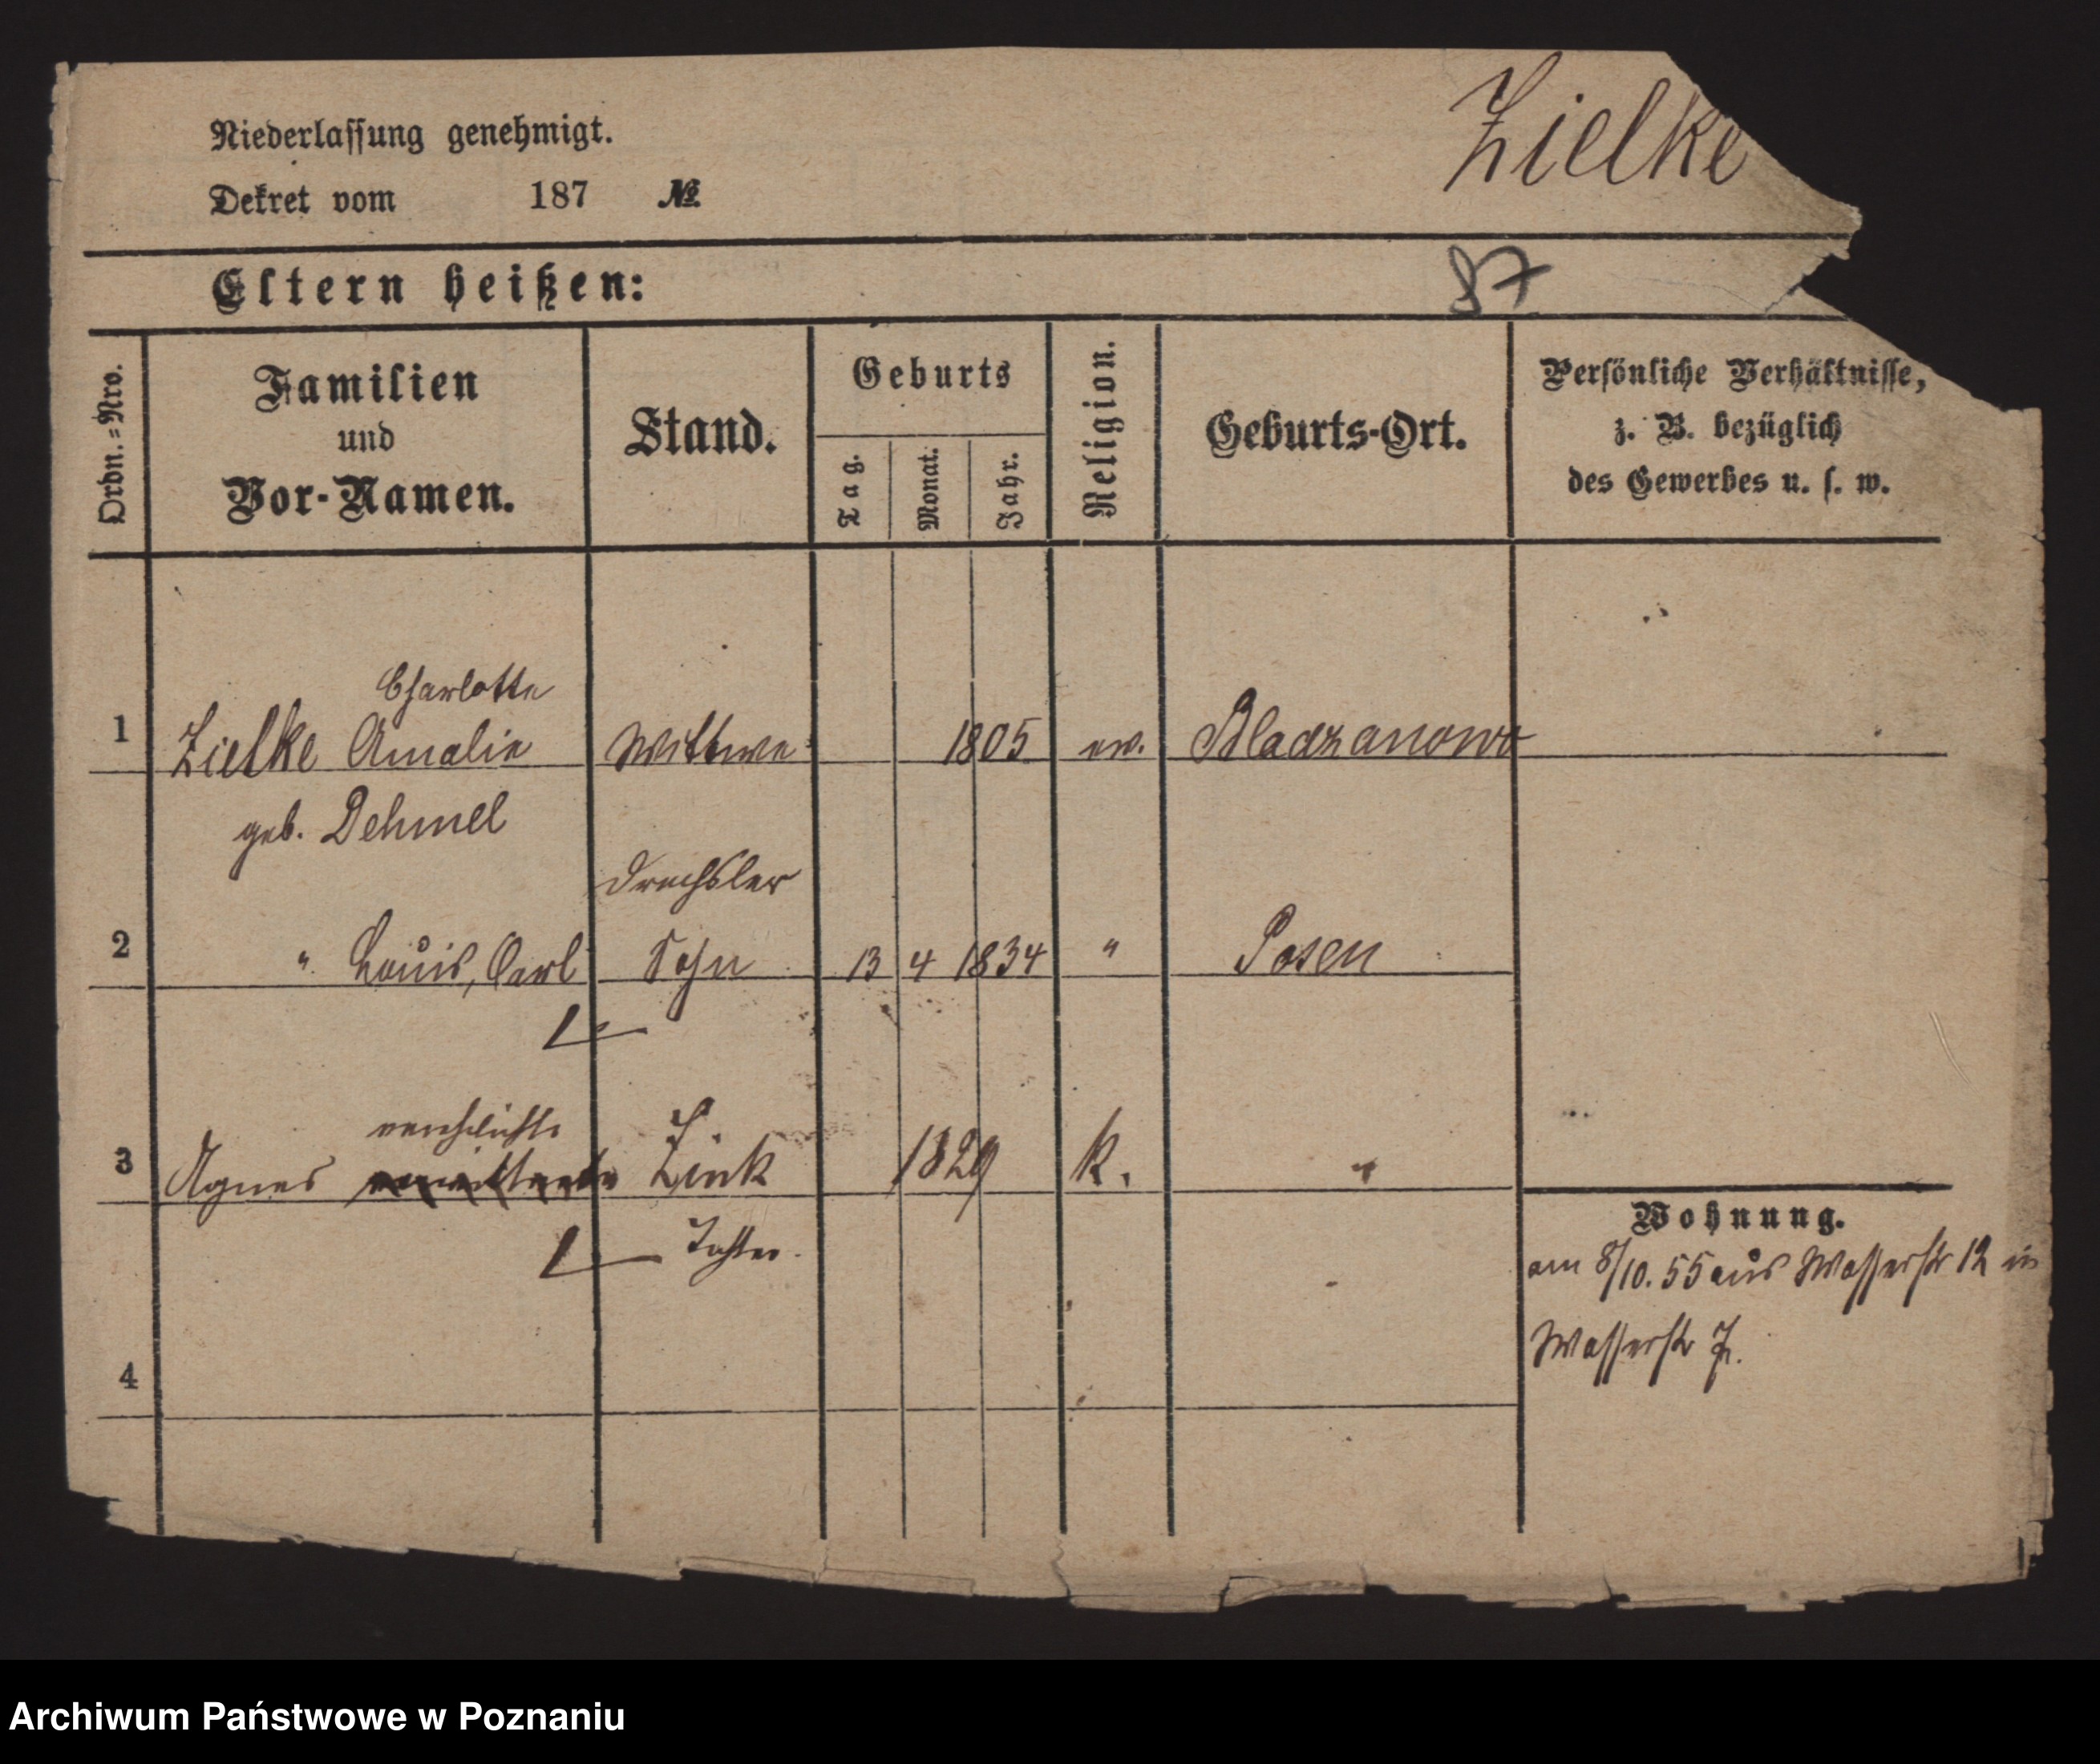 Zielke
Niederlassung genehmigt.
Dekret vom 187 №
87
Eltern heißen:
Ordn.=Nro.
Familien
und
Vor-Namen.
Stand.
Geburts
Tag.
Monat.
Jahr.
Religion.
Geburts-Ort.
Persönliche Verhältnisse,
z. B. bezüglich
des Gewerbes u. s. w.
Charlotte
1 Zielke Amalie Wittwe 1805 ev. Bladzanowo
geb. Dehmel
Drechsler
2 " Louis, Carl Sohn 13 4 1834 " Posen
verehelichte
3 Agnes Zink 1829 k. "
Tochter.
Wohnung.
am 8/10. 55 aus Wasserstr 12 in
Wasserstr 7.
4
Archiwum Państwowe w Poznaniu